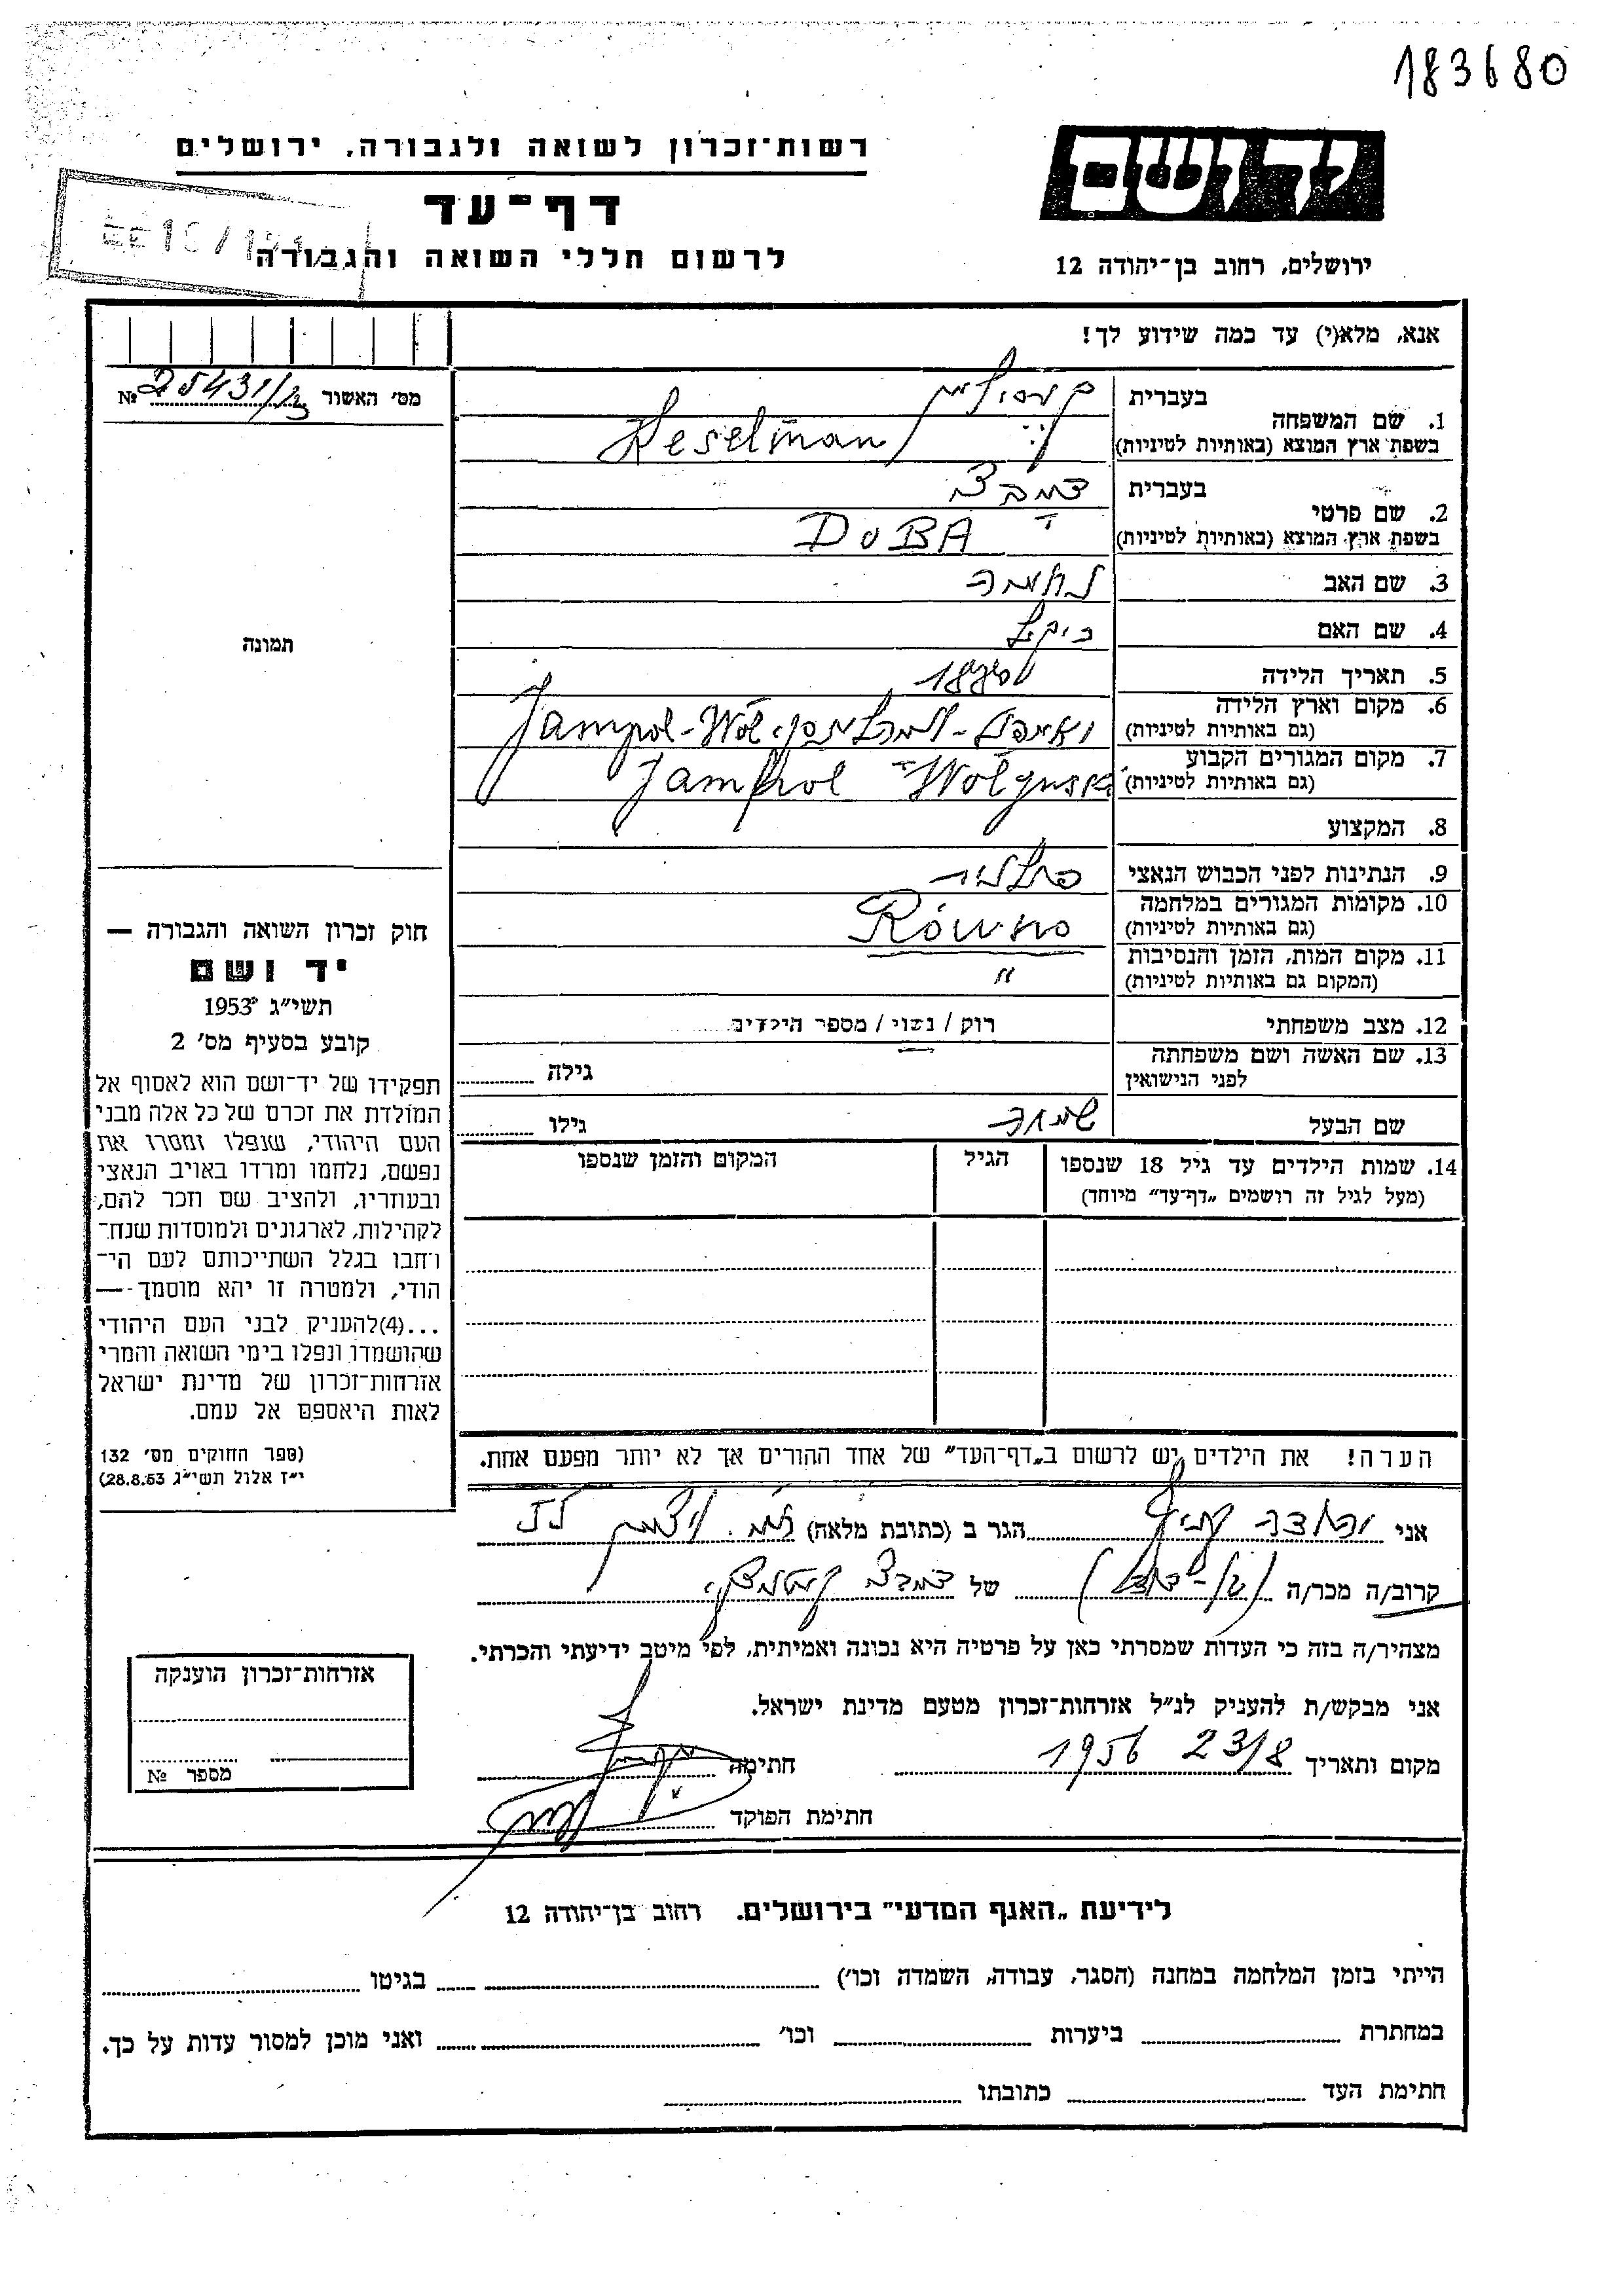 183680
יד ושם
רשות־זכרון לשואה ולגבורה, ירושלים
דף־עד
לרשום חללי השואה והגבורה
ירושלים, רחוב בן־יהודה 12
אנא, מלא(י) עד כמה שידוע לך!
מס׳ האשור 25431/13 №
1. שם המשפחה
בעברית
בשפת ארץ המוצא (באותיות לטיניות) Keselman
2. שם פרטי
בעברית
בשפת ארץ המוצא (באותיות לטיניות) DOBA
3. שם האב נחמיה
4. שם האם
5. תאריך הלידה
6. מקום וארץ הלידה
(גם באותיות לטיניות) Jampol-Wol
7. מקום המגורים הקבוע
(גם באותיות לטיניות) Jampol Wolynski
8. המקצוע
9. הנתינות לפני הכבוש הנאצי פולנית
10. מקומות המגורים במלחמה
(גם באותיות לטיניות) Równo
11. מקום המות, הזמן והנסיבות
(המקום גם באותיות לטיניות) "
12. מצב משפחתי רוק / נשוי / מספר הילדים
13. שם האשה ושם משפחתה
לפני הנישואין גילה
שם הבעל גילו
14. שמות הילדים עד גיל 18 שנספו
(מעל לגיל זה רושמים „דף־עד״ מיוחד)
הגיל
המקום והזמן שנספו
הערה! את הילדים יש לרשום ב„דף־העד״ של אחד ההורים אך לא יותר מפעם אחת.
תמונה
חוק זכרון השואה והגבורה —
יד ושם
תשי״ג 1953
קובע בסעיף מס׳ 2
תפקידו של יד־ושם הוא לאסוף אל
המולדת את זכרם של כל אלה מבני
העם היהודי, שנפלו ומסרו את
נפשם, נלחמו ומרדו באויב הנאצי
ובעוזריו, ולהציב שם וזכר להם,
לקהילות, לארגונים ולמוסדות שנח־
רחבו בגלל השתייכותם לעם הי־
הודי, ולמטרה זו יהא מוסמך —
...(4)להעניק לבני העם היהודי
שהושמדו ונפלו בימי השואה והמרי
אזרחות־זכרון של מדינת ישראל
לאות היאספם אל עמם.
(ספר החוקים מס׳ 132
י״ז אלול תשי״ג 28.8.53)
אני הגר ב (כתובת מלאה)
קרוב/ה מכר/ה של
מצהיר/ה בזה כי העדות שמסרתי כאן על פרטיה היא נכונה ואמיתית, לפי מיטב ידיעתי והכרתי.
אני מבקש/ת להעניק לנ״ל אזרחות־זכרון מטעם מדינת ישראל.
מקום ותאריך 23/8 1956 חתימה
חתימת הפוקד
אזרחות־זכרון הוענקה
מספר №
לידיעת „האגף המדעי״ בירושלים. רחוב בן־יהודה 12
הייתי בזמן המלחמה במחנה (הסגר, עבודה, השמדה וכו׳) בגיטו
במחתרת ביערות וכו׳ ואני מוכן למסור עדות על כך.
חתימת העד כתובתו